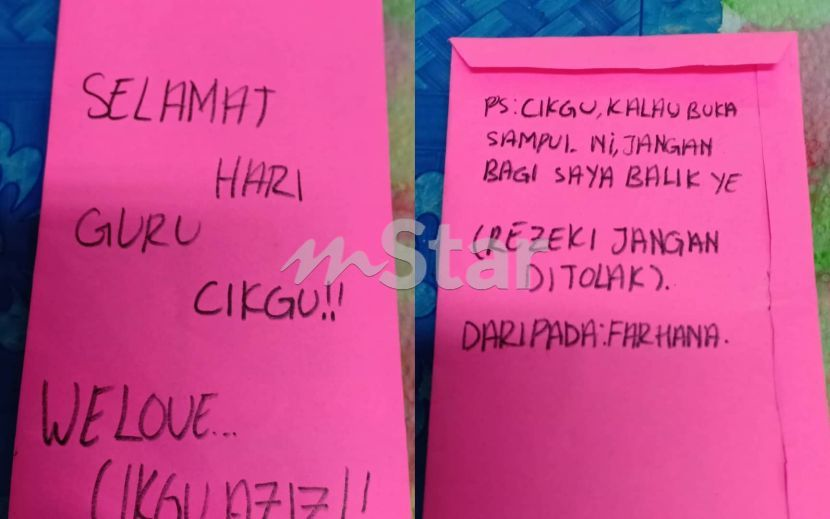 SELAMAT
HARI
GURU
CIKGU!!
WE LOVE...
CIKGU AZIZ!!
PS: CIKGU, KALAU BUKA
SAMPUL NI, JANGAN
BAGI SAYA BALIK YE
(REZEKI JANGAN
DITOLAK).
DARIPADA: FARHANA.
mStar